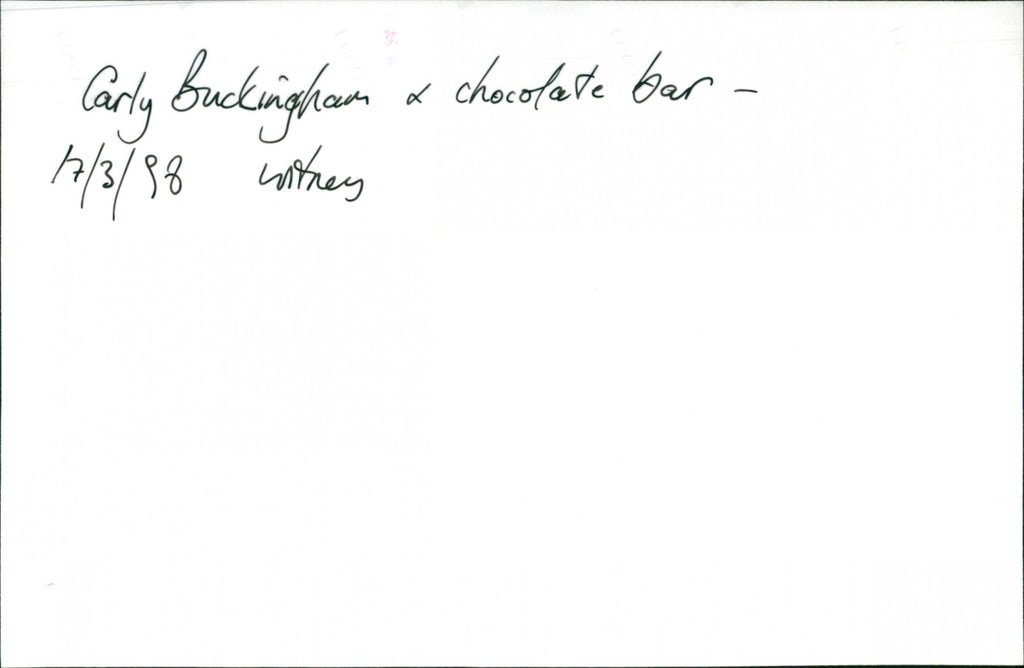 Carly Buckingham & chocolate bar -
17/3/98 Witney